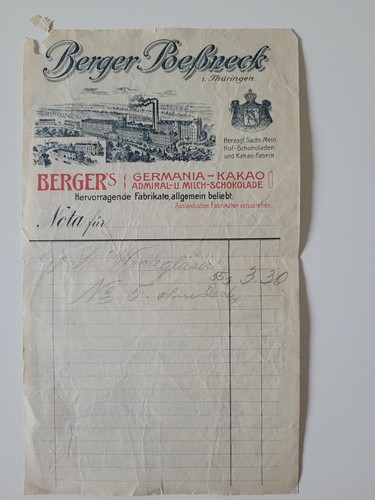 Berger Poeßneck
i. Thüringen.
Herzogl. Sachs. Mein.
Hof-Schokoladen
und Kakao-Fabrik
BERGER'S GERMANIA-KAKAO
ADMIRAL-U. MILCH-SCHOKOLADE
Hervorragende Fabrikate, allgemein beliebt.
Ausländischen Fabrikaten vorzuziehen.
Nota für
55 3.30
No 5. ohne